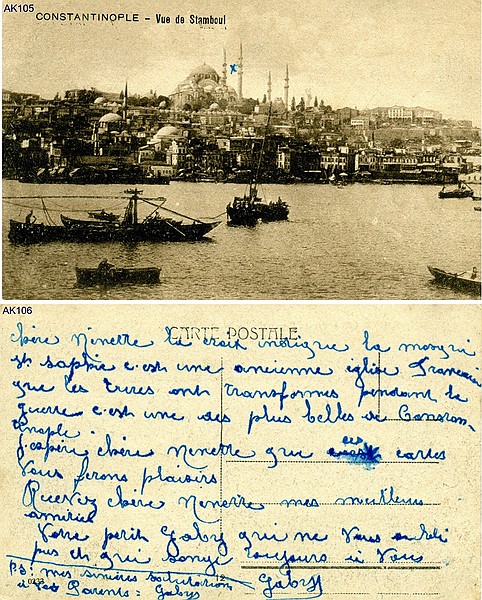 AK105
CONSTANTINOPLE – Vue de Stamboul
x
AK106
CARTE POSTALE
chère Ninette la croix indique la mosqui
st sophie c'est une ancienne église francais
que les turcs ont transformés pendant la
guerre c'est une des plus belles de Constan-
tinople.
j'espère chère Ninette que ces cartes
vous ferons plaisirs
Recevez chère Ninette mes meilleurs
amitiés
Votre petit Gaby qui ne vous oubli
pas et qui songe toujours à vous
Gaby
P.S: mes sincères salutations
à vos Parents: Gaby
12